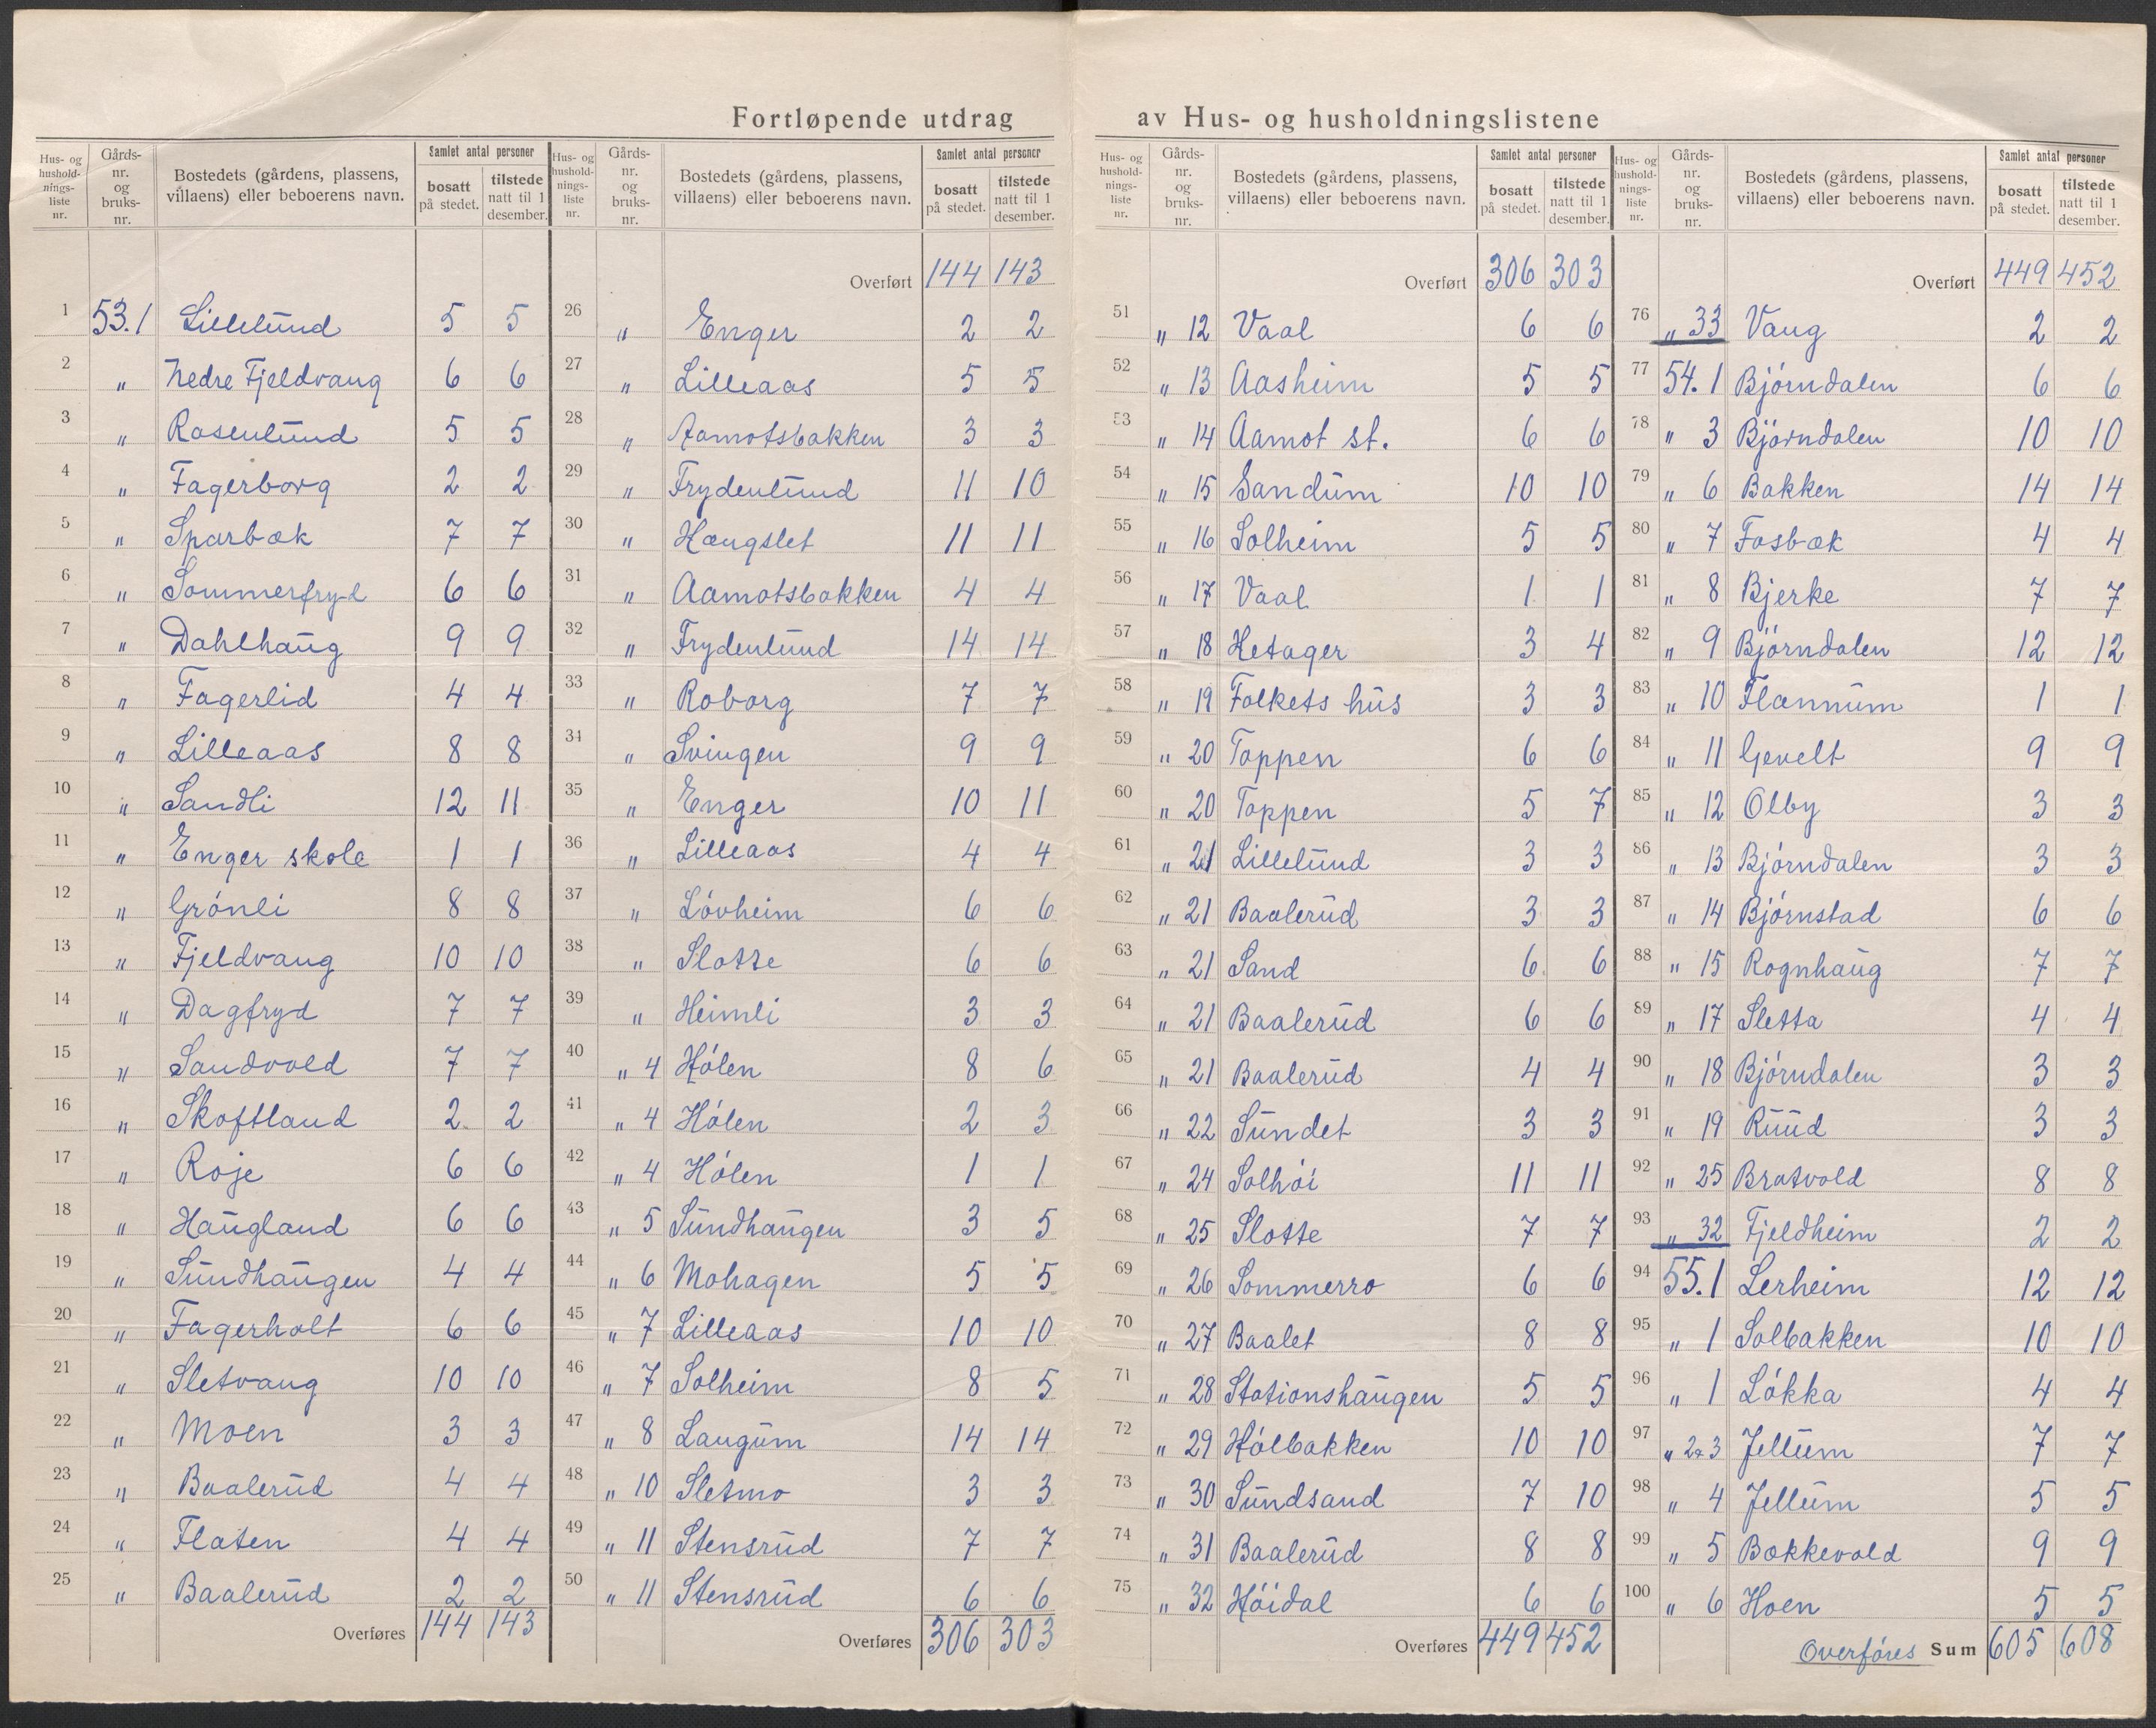 Fortløpende utdrag av Hus- og husholdningslistene
Hus- og husholdnings- liste nr. Gårds- nr. og bruks- nr. Bostedets (gårdens, plassens, villaens) eller beboerens navn. Samlet antal personer bosatt på stedet. tilstede natt til 1 desember.
1 53.1 Lillelund 5 5
2 " Nedre Fjeldvang 6 6
3 " Rosenlund 5 5
4 " Fagerborg 2 2
5 " Sparbæk 7 7
6 " Sommerfryd 6 6
7 " Dahlhaug 9 9
8 " Fagerlid 4 4
9 " Lilleaas 8 8
10 " Sandli 12 11
11 " Enger skole 1 1
12 " Grónli 8 8
13 " Fjeldvang 10 10
14 " Dagfryd 7 7
15 " Sandvold 7 7
16 " Skoftland 2 2
17 " Roje 6 6
18 " Haugland 6 6
19 " Sundhaugen 4 4
20 " Fagerholt 6 6
21 " Sletvang 10 10
22 " Moen 3 3
23 " Baalerud 4 4
24 " Flaten 4 4
25 " Baalerud 2 2
Overføres 144 143
Hus- og husholdnings- liste nr. Gårds- nr. og bruks- nr. Bostedets (gårdens, plassens, villaens) eller beboerens navn. Samlet antal personer bosatt på stedet. tilstede natt til 1 desember.
Overført 144 143
26 " Enger 2 2
27 " Lilleaas 5 5
28 " Aamotsbakken 3 3
29 " Frydenlund 11 10
30 " Hængslet 11 11
31 " Aamotsbakken 4 4
32 " Frydenlund 14 14
33 " Roborg 7 7
34 " Svingen 9 9
35 " Enger 10 11
36 " Lilleaas 4 4
37 " Lóvheim 6 6
38 " Slotte 6 6
39 " Heimli 3 3
40 " 4 Hólen 8 6
41 " 4 Hólen 2 3
42 " 4 Hólen 1 1
43 " 5 Sundhaugen 3 5
44 " 6 Mohagen 5 5
45 " 7 Lilleaas 10 10
46 " 7 Solheim 8 5
47 " 8 Langum 14 14
48 " 10 Sletmo 3 3
49 " 11 Stensrud 7 7
50 " 11 Stensrud 6 6
Overføres 306 303
Hus- og husholdnings- liste nr. Gårds- nr. og bruks- nr. Bostedets (gårdens, plassens, villaens) eller beboerens navn. Samlet antal personer bosatt på stedet. tilstede natt til 1 desember.
Overført 306 303
51 " 12 Vaal 6 6
52 " 13 Aasheim 5 5
53 " 14 Aamot st. 6 6
54 " 15 Sandum 10 10
55 " 16 Solheim 5 5
56 " 17 Vaal 1 1
57 " 18 Hetager 3 4
58 " 19 Folkets hus 3 3
59 " 20 Toppen 6 6
60 " 20 Toppen 5 7
61 " 21 Lillelund 3 3
62 " 21 Baalerud 3 3
63 " 21 Sand 6 6
64 " 21 Baalerud 6 6
65 " 21 Baalerud 4 4
66 " 22 Sundet 3 3
67 " 24 Solhói 11 11
68 " 25 Slotte 7 7
69 " 26 Sommerro 6 6
70 " 27 Baalet 8 8
71 " 28 Stationshaugen 5 5
72 " 29 Hólbakken 10 10
73 " 30 Sundsand 7 10
74 " 31 Baalerud 8 8
75 " 32 Hóidal 6 6
Overføres 449 452
Hus- og husholdnings- liste nr. Gårds- nr. og bruks- nr. Bostedets (gårdens, plassens, villaens) eller beboerens navn. Samlet antal personer bosatt på stedet. tilstede natt til 1 desember.
Overført 449 452
76 " 33 Vang 2 2
77 54.1 Bjórndalen 6 6
78 " 3 Bjórndalen 10 10
79 " 6 Bakken 14 14
80 " 7 Fosbæk 4 4
81 " 8 Bjerke 7 7
82 " 9 Bjórndalen 12 12
83 " 10 Flannum 1 1
84 " 11 Gevelt 9 9
85 " 12 Olby 3 3
86 " 13 Bjórndalen 3 3
87 " 14 Bjórnstad 6 6
88 " 15 Rognhaug 7 7
89 " 17 Sletta 4 4
90 " 18 Bjórndalen 3 3
91 " 19 Ruud 3 3
92 " 25 Bratvold 8 8
93 " 32 Fjeldheim 2 2
94 55.1 Lerheim 12 12
95 " 1 Solbakken 10 10
96 " 1 Lókka 4 4
97 " 2+3 Jellum 7 7
98 " 4 Jellum 5 5
99 " 5 Bækkevold 9 9
100 " 6 Hoen 5 5
Overfóres Sum 605 608